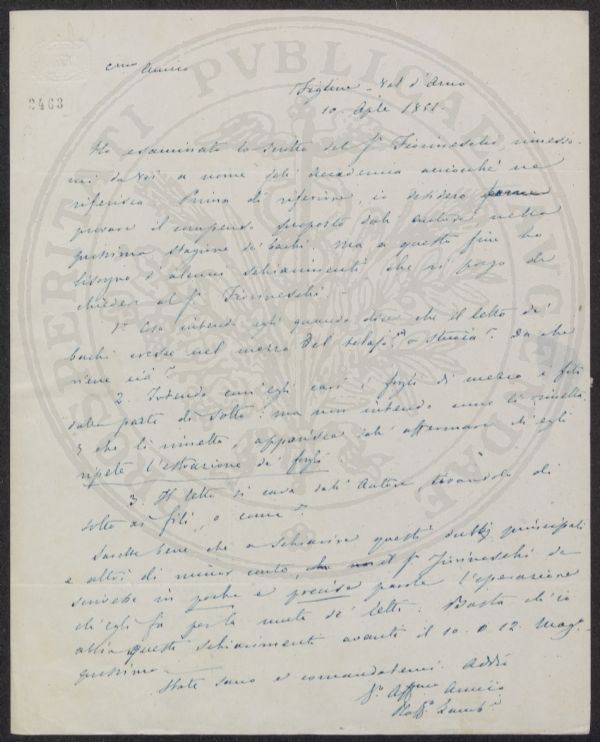 Cmo Amico
2463
Figline - Val d'Arno
10. Aple 1851.
Ho esaminato lo scritto del Sr. Fiorineschi, rimesso-
mi da voi a nome dell'Accademia acciocché ne
riferisca. Prima di riferirne, io desidero
provare il compenso proposto dall'autore nella
prossima stagione de' bachi. Ma a questo fine ho
bisogno d'alcuni schiarimenti che vi prego da
chieder al Sr. Fiorineschi.
1o Cosa intende egli quando dice che il letto de'
bachi cresce nel mezzo del o stuoia? Da che
viene ciò?
2. Intendo com'egli cavi i fogli di mezzo e fili
dalla parte di sotto: ma non intendo come li rimetta,
e che li rimetta, apparisce dall'affermare ch'egli
ripete l'estrazione de' fogli.
3. Il letto si cava dall'Autore tirandolo di
sotto ai fili, o come?
Sarebbe bene che a schiarire questi dubbj principali
e altri di minor conto, il Sr. Fiorineschi de-
scrivesse in poche e precise parole l'operazione
ch'egli fa per la muta de' letti. Basta ch'io
abbia questi schiarimenti avanti il 10. o 12. Magg.
prossimo.
State sano e comandatemi. Addio
Vo. Affmo Amico
Raffo. Lamb.
PROSPERITATI PVBLICAE AVGENDAE